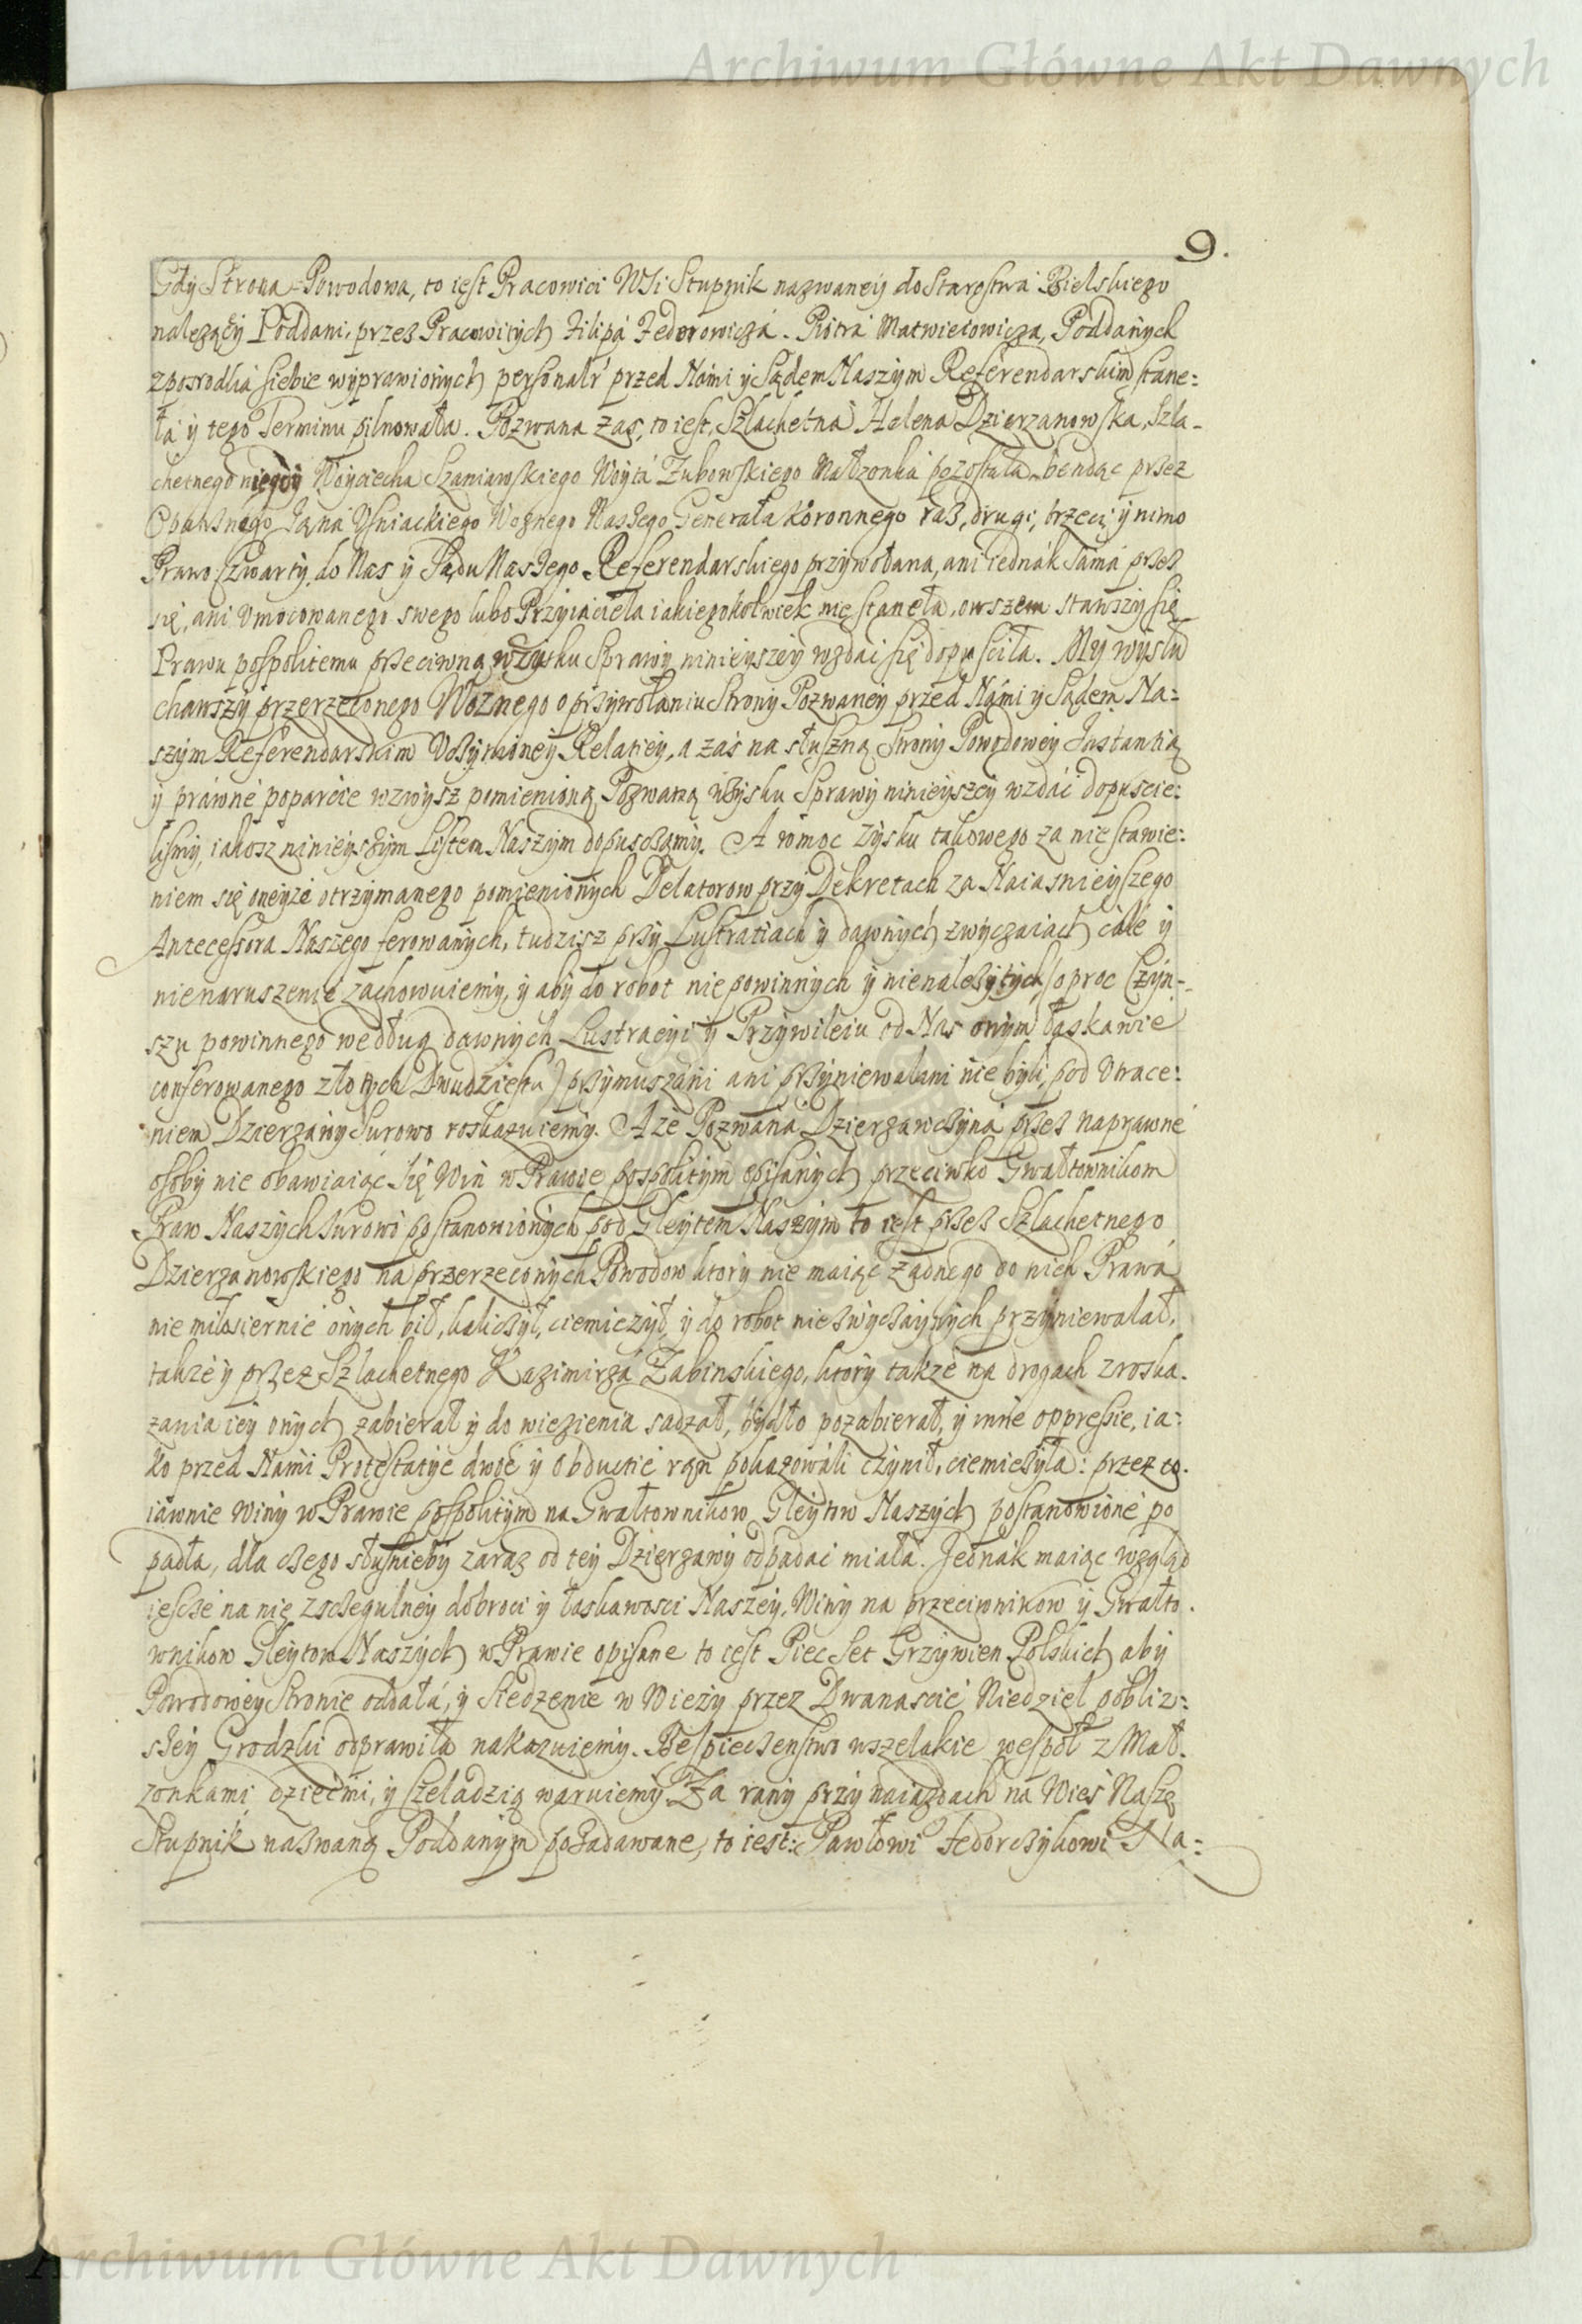 Archiwum Główne Akt Dawnych
9.
Gdy Strona Powodowa, to iest Pracowici WSi Stupnik nazwaney do Starostwa Bielskiego
należący Poddani, przez Pracowitych Filipa Fedorowicza. Piotra Matwieiowicza, Poddanych
zposrodka siebie wyprawionych personalr przed Nami y Sądem Naszym Referendarskim stane:
ła y tego Terminu pilnowała. Pozwana zas, to iest, Szlachetna Helena Dzierzanowska, Szla-
chetnego niegdy Woyciecha Szaniawskiego Woyta Zubowskiego Małzonka pozostała, bendąc przez
Opatrznego Jana Usniackiego Woznego Naszego Generała Koronnego raz, drugi, trzeci, y nimo
Prawo czwarty, do Nas y Sądu Naszego Referendarskiego przywołana, ani iednak sama przez
się, ani Umocowanego swego lubo Przyiaciela iakiegokolwiek nie staneła, owszem stawszy się
Prawu pospolitemu przeciwną wzysku Sprawy ninieyszey wzdac się dopusciła. My wysłu
chawszy przerzeconego Woznego o przywołaniu Strony Pozwaney przed Nami y Sądem Na=
szym Referendarskim Uczynioney Relatiey, a zas na słuszną Strony Powodowey Instantią
y prawne poparcie wzwysz pomienioną Pozwaną wzysku Sprawy ninieyszey wzdać dopuscie:
lismy, iakosz ninieyszym Listem Naszym dopusczamy. A w moc zysku takowego za nie stawie:
niem się oneyze otrzymanego pomienionych Delatorow przy Dekretach za Naiasnieyszego
Antecessora Naszego ferowanych, tudzisz przy Lustratiach y dawnych zwyczaiach całe y
nienaruszenie zachowuiemy, y aby do robot niepowinnych y nienalezytych, (oproc Czyn-
szu powinnego według dawnych Lustracyi y Przywileiu od Nas onym łaskawie
conferowanego złotych Dwudziestu) przymuszani ani przyniewalani nie byli, pod Utrace:
niem Dzierzawy Surowo roskazuiemy. A ze Pozwana Dzierzawczyna przez naprawne
osoby nie obawiaiąc się Win w Prawie pospolitym opisanych przeciwko Gwałtownikom
Praw Naszych surowi postanowionych pod Gleytem Naszym to iest przez Szlachetnego
Dzierzanowskiego na przerzeconych Powodow ktory nie maiąc żadnego do nich Prawa
nie milosiernie onych bił, kaliczył, ciemiezył, y do robot niezwyczaynych przyniewalał,
takze y przez Szlachetnego Kazimirza Zabinskiego, ktory takze na drogach z roska.
zania iey onych zabierał y do wiezienia sadzał, bydło pozabierał, y inne oppressie, ia:
ko przed Nami Protestatye dwoe y Obductie ran pokazowali czynił, ciemiezyła: przez co.
iawnie Winy w Prawie pospolitym na Gwałtownikow Gleytow Naszych postanowione po
padła, dla czego słusznieby zaraz od tey Dzierzawy odpadać miała. Jednak maiąc wzgląd
iescze na nię zsczegulney dobroci y łaskawosci Naszey, Winy na przeciwnikow y Gwałto.
wnikow Gleytow Naszych w Prawie opisane to iest Piec Set Grzywien Polskich aby
Powodowey Stronie oddała, y Siedzenie w Wieży przez Dwanascie Niedziel pobliz=
szey Grodzki odprawiła nakazuiemy. Bespieczenstwo wszelakie wespoł z Mał.
zonkami dziećmi, y Czeladzią waruiemy. Za rany przy naiazdach na Wieś Naszę
Stupnik nazwaną Poddanym pozadawane, to iest: Pawłowi Fedorczykowi Na=
Archiwum Główne Akt Dawnych